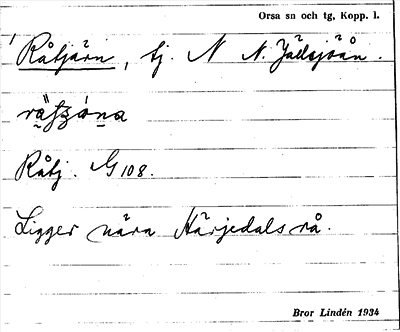 Orsa sn och tg, Kopp. l.
Råtjärn, tj. N N. Jällsjöån.
Råtj. G 108.
Ligger nära Härjedals rå.
Bror Lindén 1934